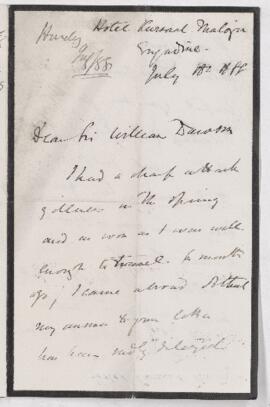 Huxley
Hotel Kursaal Maloja
Engadine
July 18 1888
Dear Sir William Dawson
I had a sharp attack
of illness in the spring
and as soon as I was well
enough to travel a month
ago, I came abroad so that
my answer to your letter
has been sadly delayed